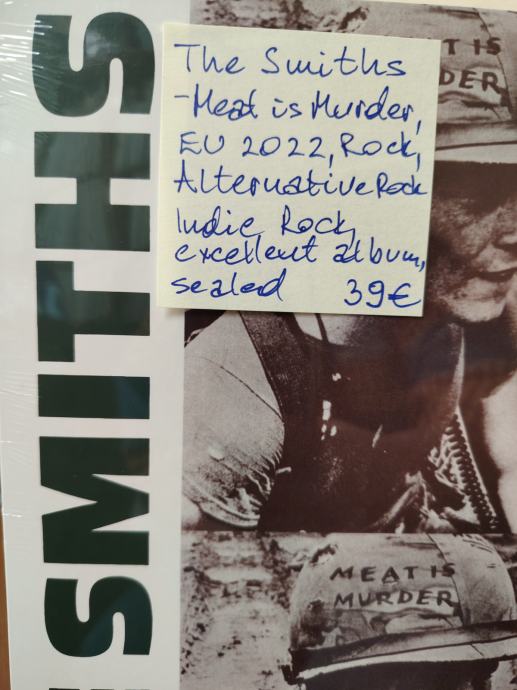 The Smiths
-Meat is Murder,
EU 2022, Rock,
Alternative Rock
Indie Rock,
excellent album,
sealed 39€
SMITHS
T IS
DER
MEAT IS
MURDER